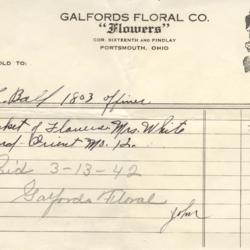 GALFORDS FLORAL CO.
"Flowers"
COR. SIXTEENTH AND FINDLAY
PORTSMOUTH, OHIO
OLD TO:
Ball 1803
ket of Flowers Mrs. White
Orient Mo.
3-13-42
Galfords Floral
John